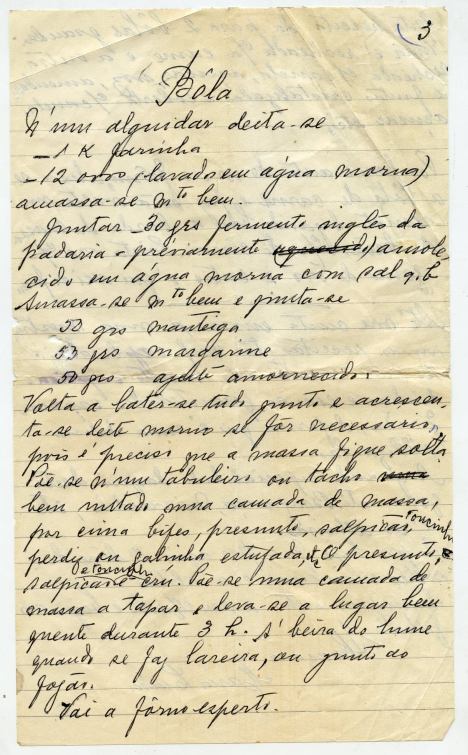 3
Bôla
N'um alguidar deita-se
- 1 K farinha
- 12 ovos (lavados em água morna)
amassa-se mto bem.
Juntar - 30 grs fermento inglês da
padaria - préviamente amole-
cido em água morna com sal q.b
Amassa-se mto bem e junta-se
50 grs manteiga
50 grs margarine
50 grs azeite amornecido.
Volta a bater-se tudo junto e acrescen-
ta-se leite morno se fôr necessario,
pois é preciso que a massa fique solta
Põe-se n'um tabuleiro ou tacho
bem untado uma camada de massa,
por cima bifes, presunto, salpicão, toucinho
perdiz ou galinha estufada, etc. O presunto,
salpicão e toucinho é cru. Põe-se uma camada de
massa a tapar e leva-se a lugar bem
quente durante 3 h. Á beira do lume
quando se faz lareira, ou junto do
fogão.
Vai a fôrno esperto.